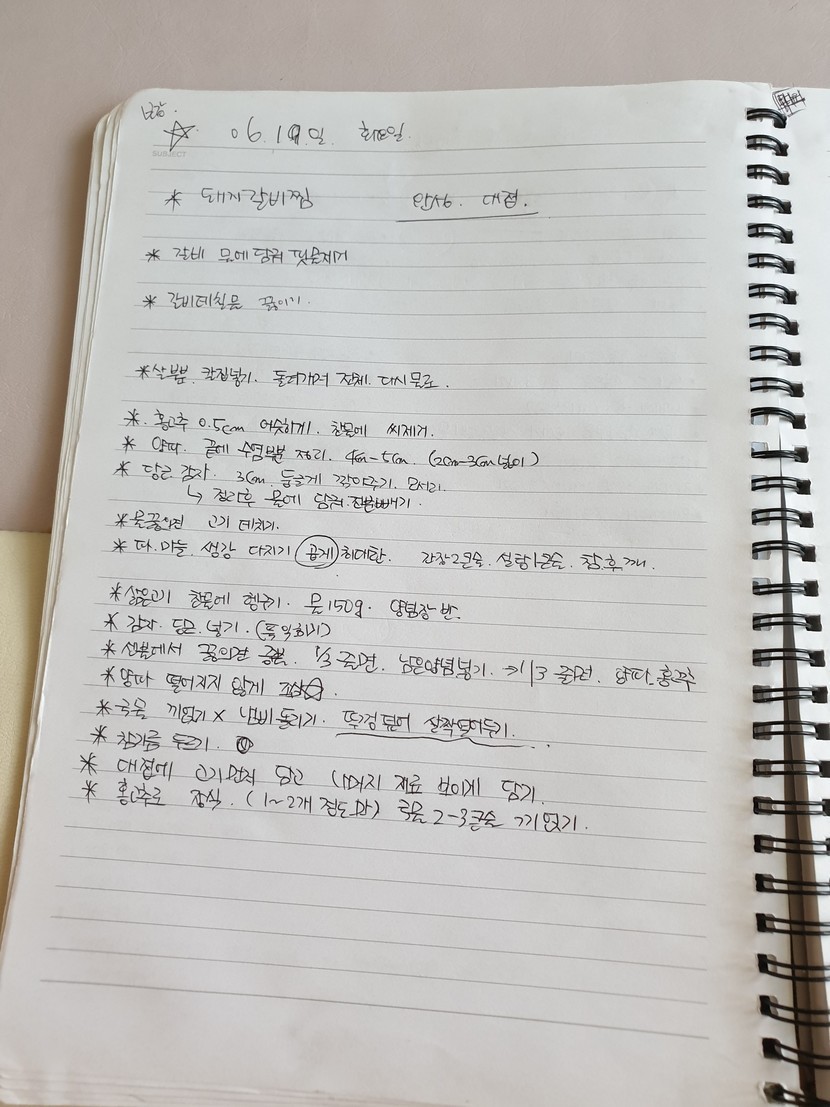 ☆ 06.19일 화요일.
SUBJECT
* 돼지갈비찜 완성. 대접.
* 갈비 물에 담궈 핏물제거
* 갈비데칠물 끓이기.
* 살부분 칼집넣기. 돌려가며 전체. 다시 물로.
*. 홍고추 0.5cm 어슷하게. 찬물에 씨제거.
* 양파. 끝에 수염부분 정리. 4cm-5cm. (2cm-3cm 넓이)
* 당근 감자. 3cm. 둥글게 깎아주기. 모서리.
↳ 정리후 물에 담궈 전분빼기.
* 물끓으면 고기 데치기.
* 파.마늘.생강 다지기 곱게 최대한. 간장2큰술. 설탕1큰술. 참.후.깨.
* 삶은고기 찬물에 헹구기. 물150g. 양념장 반.
* 감자. 당근. 넣기. (푹 익히기)
* 센불에서 끓으면 중불. 1/3 졸면. 남은양념넣기. → 1/3 졸면. 양파.홍고추
* 양파 떨어지지 않게
* 국물 끼얹기 x 냄비돌리기. 뚜껑덮어 살짝덮어두기.
* 참기름 두르기.
* 대접에 고기먼저 담고 나머지 재료 보이게 담기.
* 홍고추로 장식. (1~2개 정도만) 국물 2-3큰술 끼얹기.